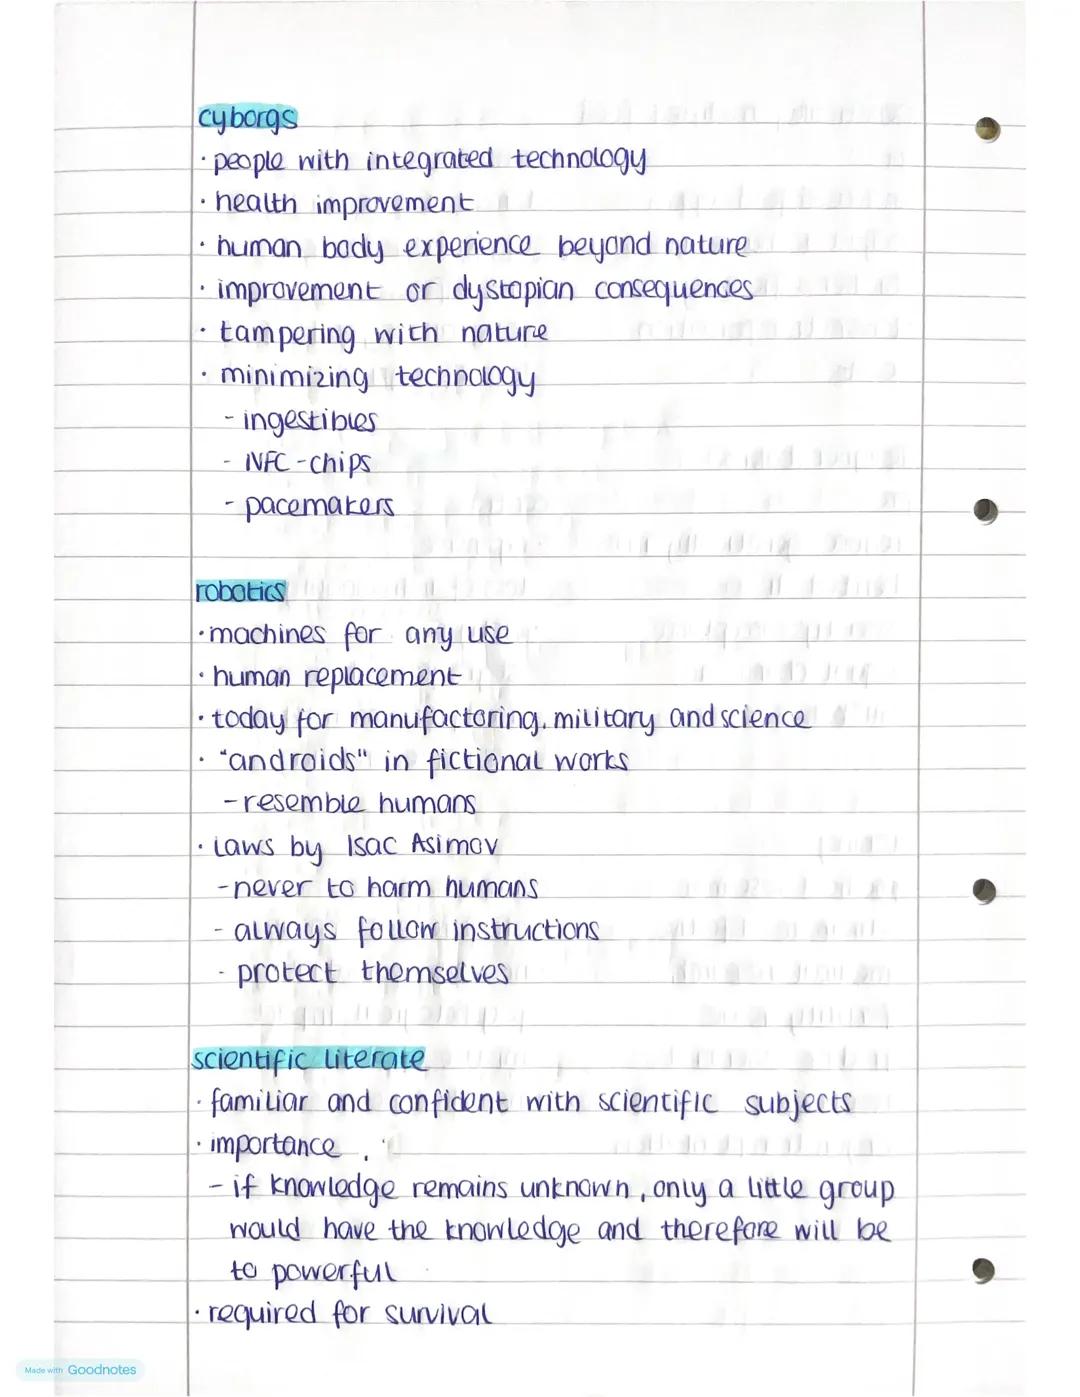 cyborgs
· people with integrated technology
· health improvement
· human body experience beyond nature
· improvement or dystopian consequences
· tampering with nature
· minimizing technology
- ingestibles
- NFC-chips
- pacemakers
robotics
· machines for any use
· human replacement
· today for manufactoring, military and science
· "androids" in fictional works
- resemble humans
· Laws by Isac Asimov
- never to harm humans
- always follow instructions
- protect themselves
scientific literate
· familiar and confident with scientific subjects
· importance
- if knowledge remains unknown, only a little group
would have the knowledge and therefore will be
to powerful
· required for survival
Made with Goodnotes